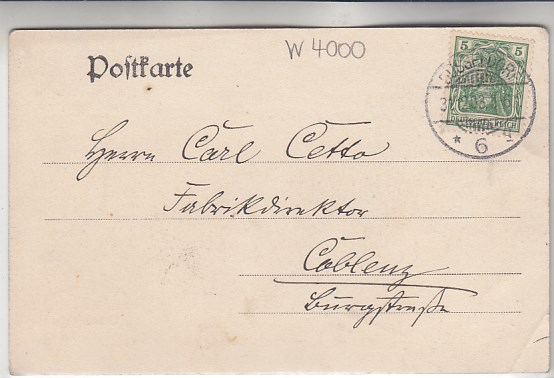 W 4000
Postkarte
5 5
DEUTSCHES REICH
DÜSSELDORF
* 6
Herrn Carl Cetto
Fabrikdirektor
Coblenz
Burgstraße